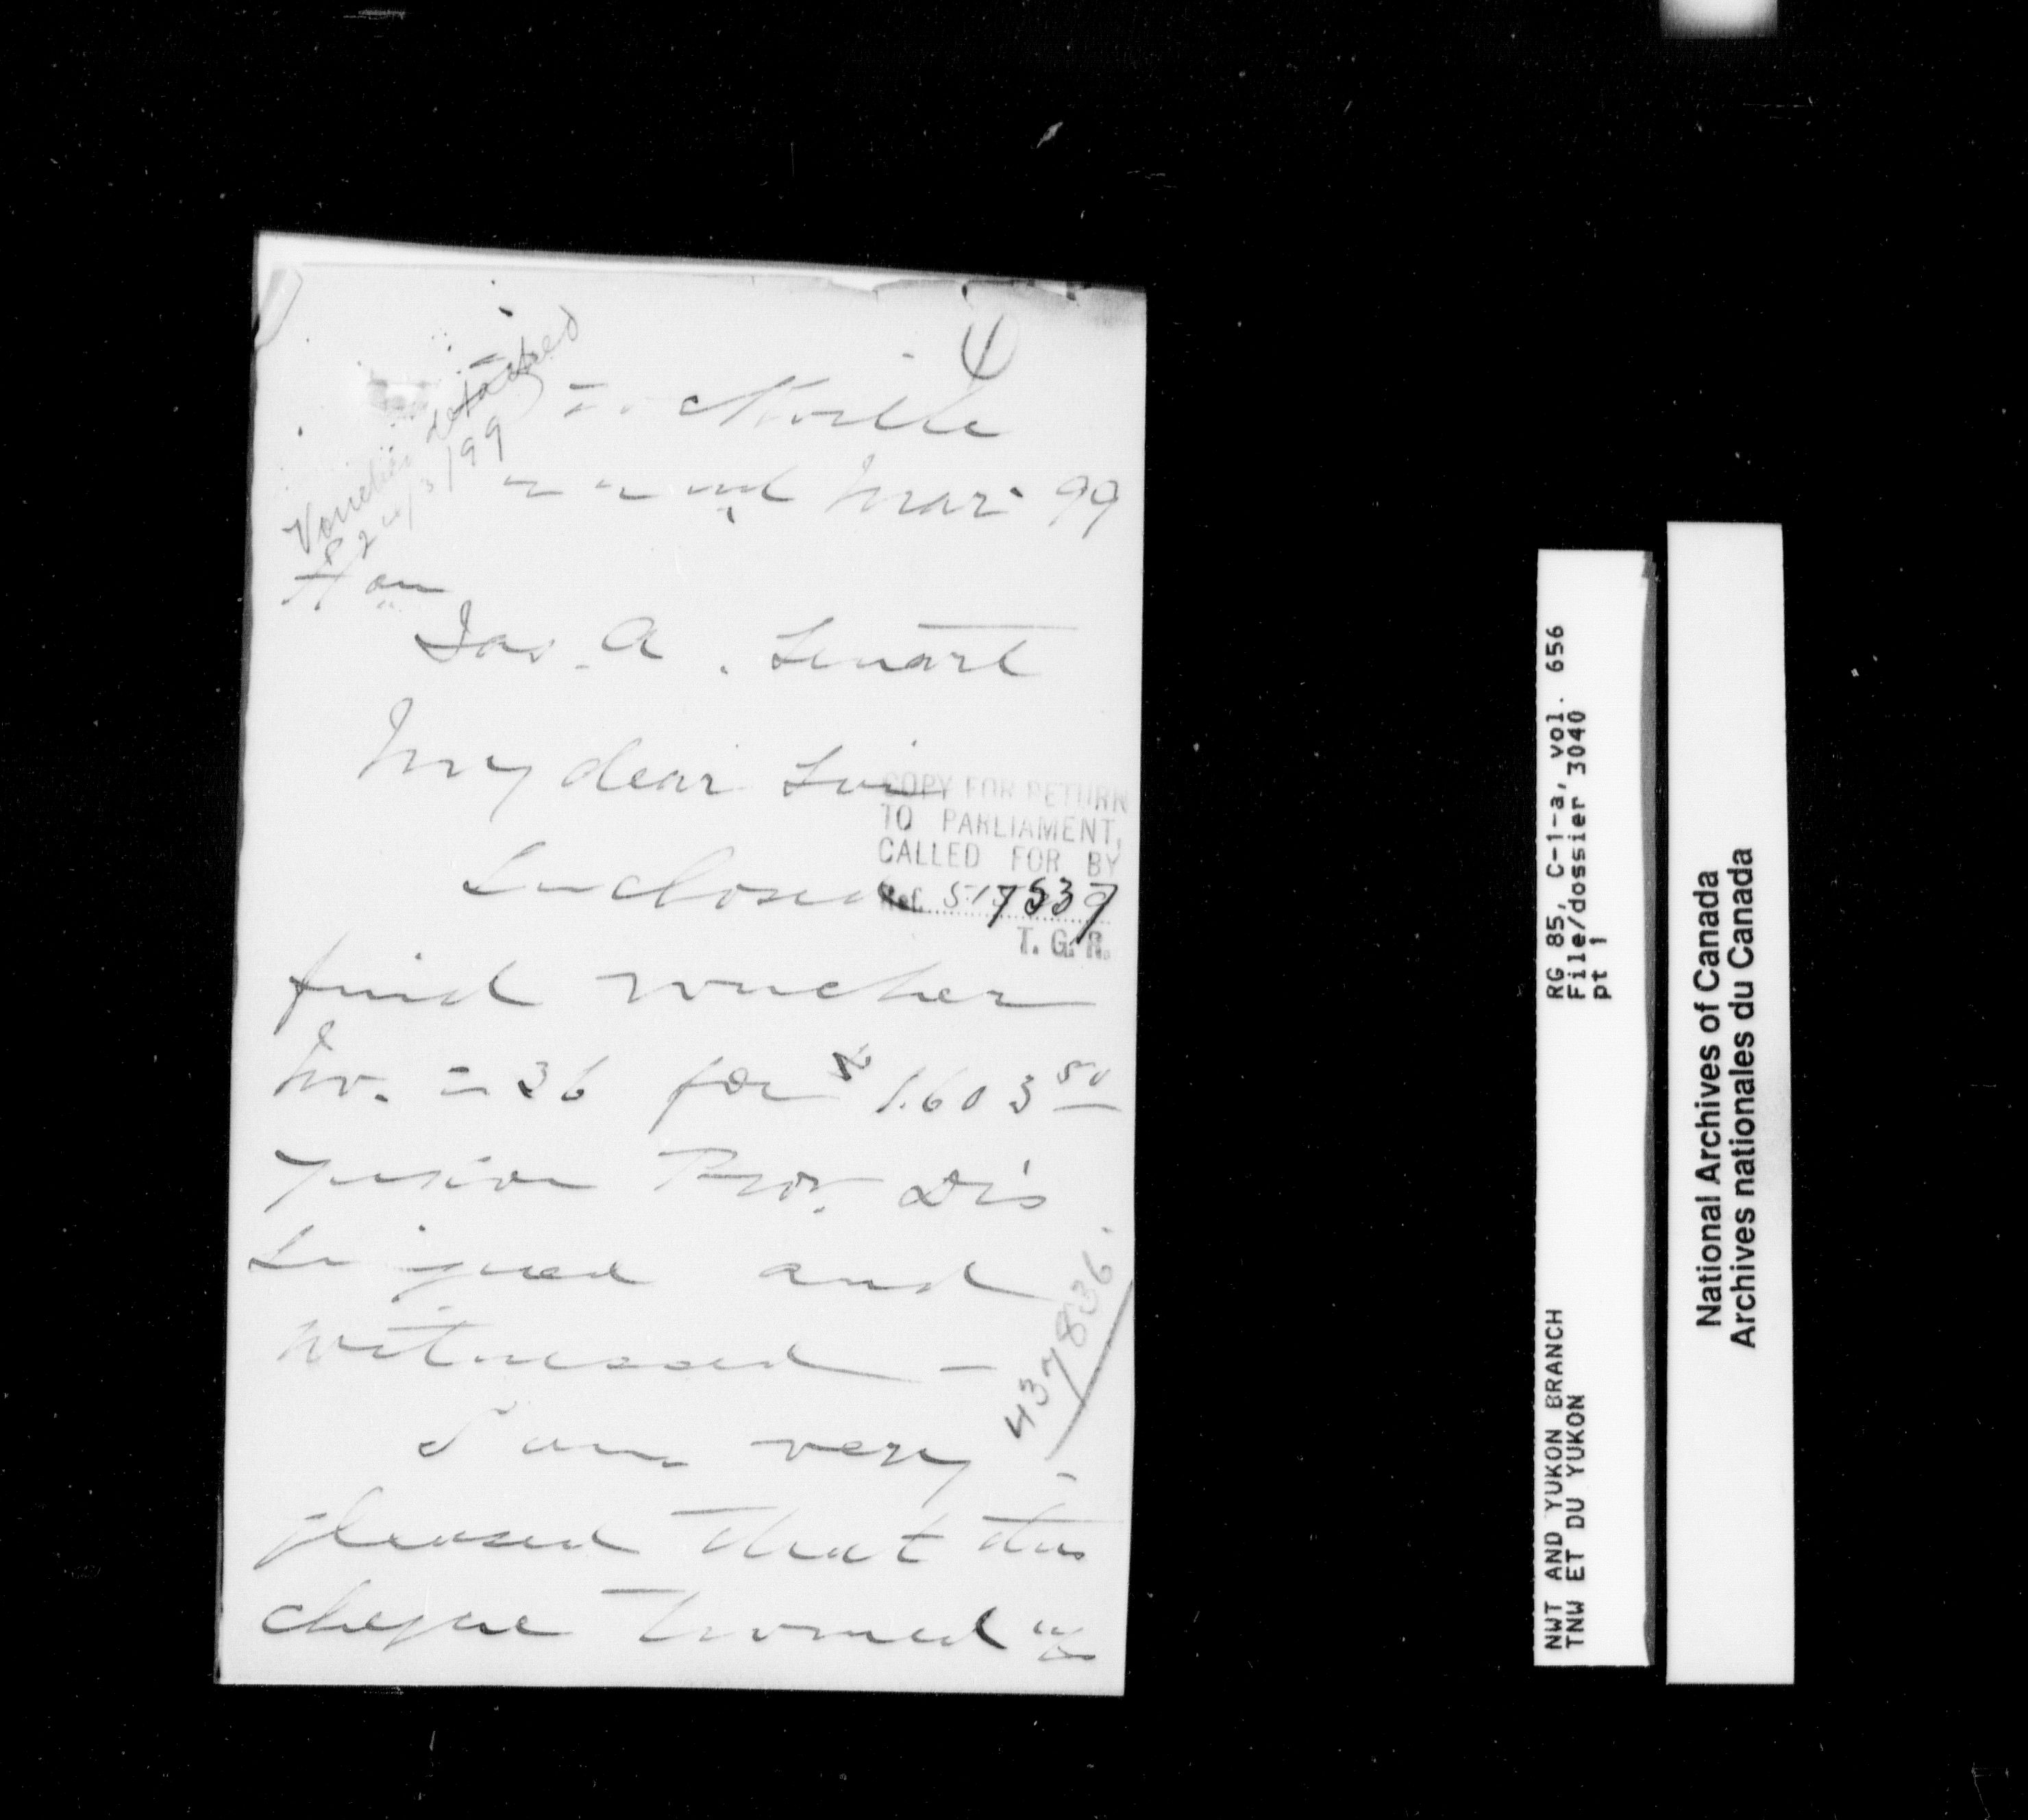 Voucher detached
24/3/99
Mar. 99
Hon
Jas. A. Smart
My dear Sir
COPY FOR RETURN
TO PARLIAMENT,
CALLED FOR BY
Ref. 517537
T. G. R.
Enclosed
find voucher
No. 236 for $1.603 50
Yukon Prov. Dis
Signed and
witnessed –
437836
I am very
pleased that this
cheque turned up
RG 85, C-1-a, vol. 656
File/dossier 3040
pt 1
NWT AND YUKON BRANCH
TNW ET DU YUKON
National Archives of Canada
Archives nationales du Canada